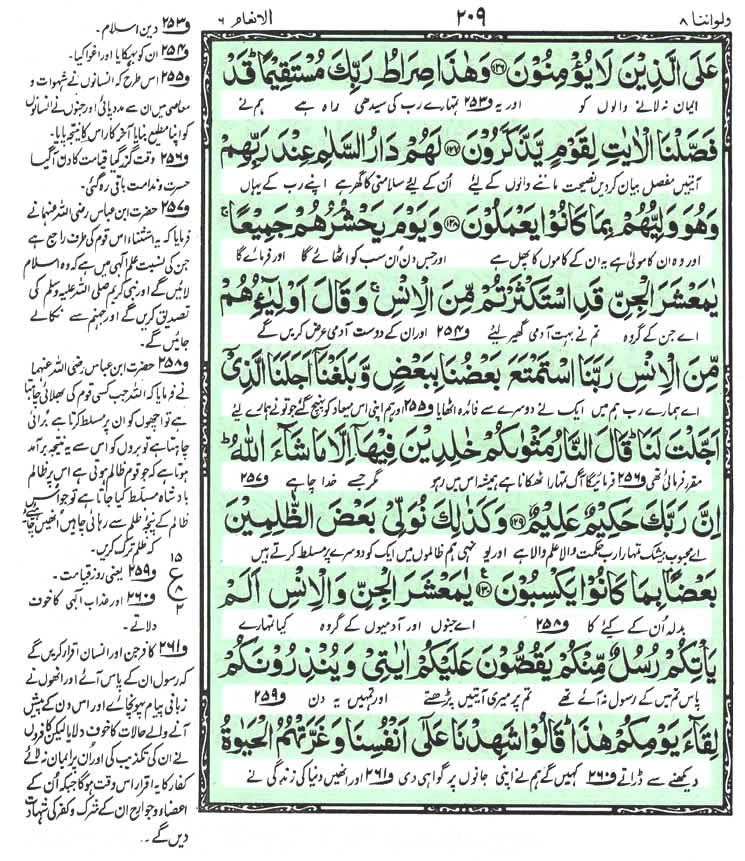 ولواننا ٨
٢٠٩
الانعام ٦
عَلَى الَّذِيْنَ لَا يُؤْمِنُوْنَ ﴿۱۲۶﴾ وَهٰذَا صِرَاطُ رَبِّكَ مُسْتَقِيْمًا ؕ قَدْ
ایمان نہ لانے والوں کو اور یہ و۲۵۳ تمہارے رب کی سیدھی راہ ہے ہم نے
فَصَّلْنَا الْاٰيٰتِ لِقَوْمٍ يَّذَّكَّرُوْنَ ﴿۱۲۷﴾ لَهُمْ دَارُ السَّلٰمِ عِنْدَ رَبِّهِمْ
آیتیں مفصل بیان کردیں نصیحت ماننے والوں کے لیئے اُن کے لیئے سلامتی کا گھر ہے اپنے رب کے یہاں
وَهُوَ وَلِيُّهُمْ بِمَا كَانُوْا يَعْمَلُوْنَ ﴿۱۲۸﴾ وَيَوْمَ يَحْشُرُهُمْ جَمِيْعًا ۚ
اور وہ ان کا مولیٰ ہے یہ ان کے کاموں کا پھل ہے اور جس دن اُن سب کو اٹھائے گا اور فرمائے گا
يٰمَعْشَرَ الْجِنِّ قَدِ اسْتَكْثَرْتُمْ مِّنَ الْاِنْسِ ۚ وَقَالَ اَوْلِيٰٓؤُهُمْ
اے جن کے گروہ تم نے بہت آدمی گھیر لیئے و۲۵۴ اور ان کے دوست آدمی عرض کریں گے
مِّنَ الْاِنْسِ رَبَّنَا اسْتَمْتَعَ بَعْضُنَا بِبَعْضٍ وَّبَلَغْنَاۤ اَجَلَنَا الَّذِيْۤ
اے ہمارے رب ہم میں ایک نے دوسرے سے فائدہ اٹھایا و۲۵۵ اور ہم اپنی اس میعاد کو پہنچ گئے جو تو نے ہمارے لیے
اَجَّلْتَ لَنَا ؕ قَالَ النَّارُ مَثْوٰىكُمْ خٰلِدِيْنَ فِيْهَاۤ اِلَّا مَا شَآءَ اللّٰهُ ؕ
مقرر فرمائی تھی و۲۵۶ فرمائیگا آگ تمہارا ٹھکانا ہے ہمیشہ اس میں رہو مگر جسے خدا چاہے و۲۵۷
اِنَّ رَبَّكَ حَكِيْمٌ عَلِيْمٌ ﴿۱۲۹﴾ وَكَذٰلِكَ نُوَلِّيْ بَعْضَ الظّٰلِمِيْنَ
اے محبوب بیشک تمہارا رب حکمت والا علم والا ہے اور یونہی ہم ظالموں میں ایک کو دوسرے پر مسلط کرتے ہیں
بَعْضًۢا بِمَا كَانُوْا يَكْسِبُوْنَ ﴿۱۳۰﴾ يٰمَعْشَرَ الْجِنِّ وَالْاِنْسِ اَلَمْ
بدلہ اُن کے کیئے کا و۲۵۸ اے جنوں اور آدمیوں کے گروہ کیا تمہارے
يَاْتِكُمْ رُسُلٌ مِّنْكُمْ يَقُصُّوْنَ عَلَيْكُمْ اٰيٰتِيْ وَيُنْذِرُوْنَكُمْ
پاس تم میں کے رسول نہ آئے تھے تم پر میری آیتیں پڑھتے اور تمہیں یہ دن و۲۵۹
لِقَآءَ يَوْمِكُمْ هٰذَا ؕ قَالُوْا شَهِدْنَا عَلٰۤى اَنْفُسِنَا وَغَرَّتْهُمُ الْحَيٰوةُ
دیکھنے سے ڈراتے و۲۶۰ کہیں گے ہم نے اپنی جانوں پر گواہی دی و۲۶۱ اور انھیں دنیا کی زندگی نے
و۲۵۳ دین اسلام۔
و۲۵۴ ان کو بہکایا اور اغوا کیا۔
و۲۵۵ اس طرح کہ انسانوں نے شہوات و
معاصی میں ان سے مدد پائی اور جنوں نے انسانوں
کو اپنا مطیع بنایا آخر کار اس کا نتیجہ پایا۔
و۲۵۶ وقت گزر گیا قیامت کا دن آگیا
حسرت و ندامت باقی رہ گئی۔
و۲۵۷ حضرت ابن عباس رضی اللہ عنہما نے
فرمایا کہ یہ استثناء اس قوم کی طرف راجع ہے
جن کی نسبت علم الٰہی میں ہے کہ وہ اسلام
لائیں گے اور نبی کریم صلی اللہ علیہ وسلم کی
تصدیق کریں گے اور جہنم سے نکالے
جائیں گے۔
و۲۵۸ حضرت ابن عباس رضی اللہ عنہما
نے فرمایا کہ اللہ جب کسی قوم کی بھلائی چاہتا
ہے تو اچھوں کو ان پر مسلط کرتا ہے بُرائی
چاہتا ہے تو بروں کو اس سے یہ نتیجہ برآمد
ہوتا ہے کہ جو قوم ظالم ہوتی ہے اس پر ظالم
بادشاہ مسلط کیا جاتا ہے تو جو اس
ظالم کے پنجۂ ظلم سے رہائی چاہیں انھیں چاہیے
کہ ظلم ترک کریں۔
١٥
ع
٨
٢
و۲۵۹ یعنی روز قیامت۔
و۲۶۰ اور عذاب الٰہی کا خوف
دلاتے۔
و۲۶۱ کافر جن اور انسان اقرار کریں گے
کہ رسول ان کے پاس آئے اور انھوں نے
زبانی پیام پہونچائے اور اس دن کے پیش
آنے والے حالات کا خوف دلایا لیکن کافروں
نے ان کی تکذیب کی اور اُن پر ایمان نہ لائے
کفار کا یہ اقرار اس وقت ہوگا جبکہ اُن کے
اعضاء و جوارح ان کے شرک و کفر کی شہادت
دیں گے۔